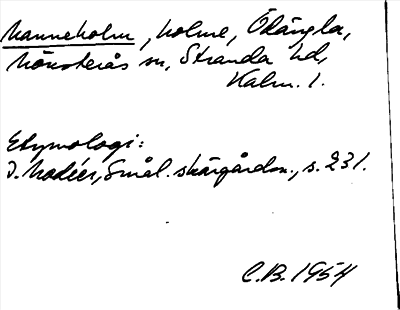 Manneholm, holme, Ödängla,
Mönsterås sn, Stranda hd,
Kalm. l.
Etymologi:
I. Modéer, Smål. skärgårdsn., s. 231.
C.B. 1954